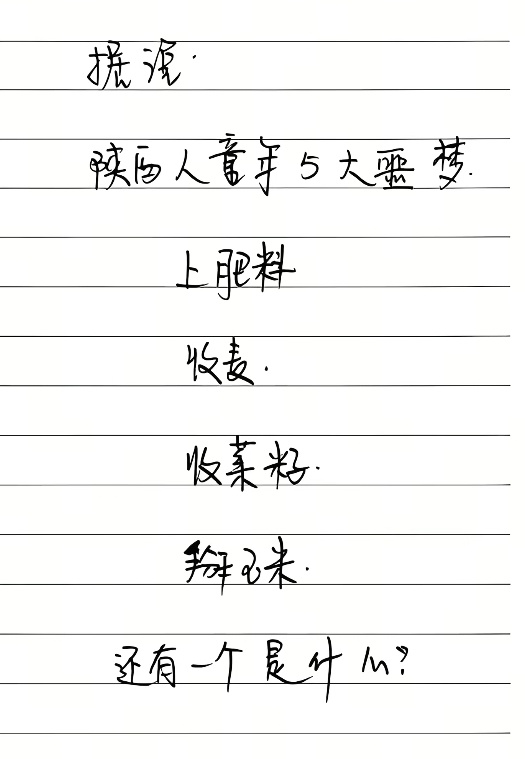 据说.
陕西人童年5大噩梦.
上肥料
收麦.
收菜籽.
掰玉米.
还有一个是什么?